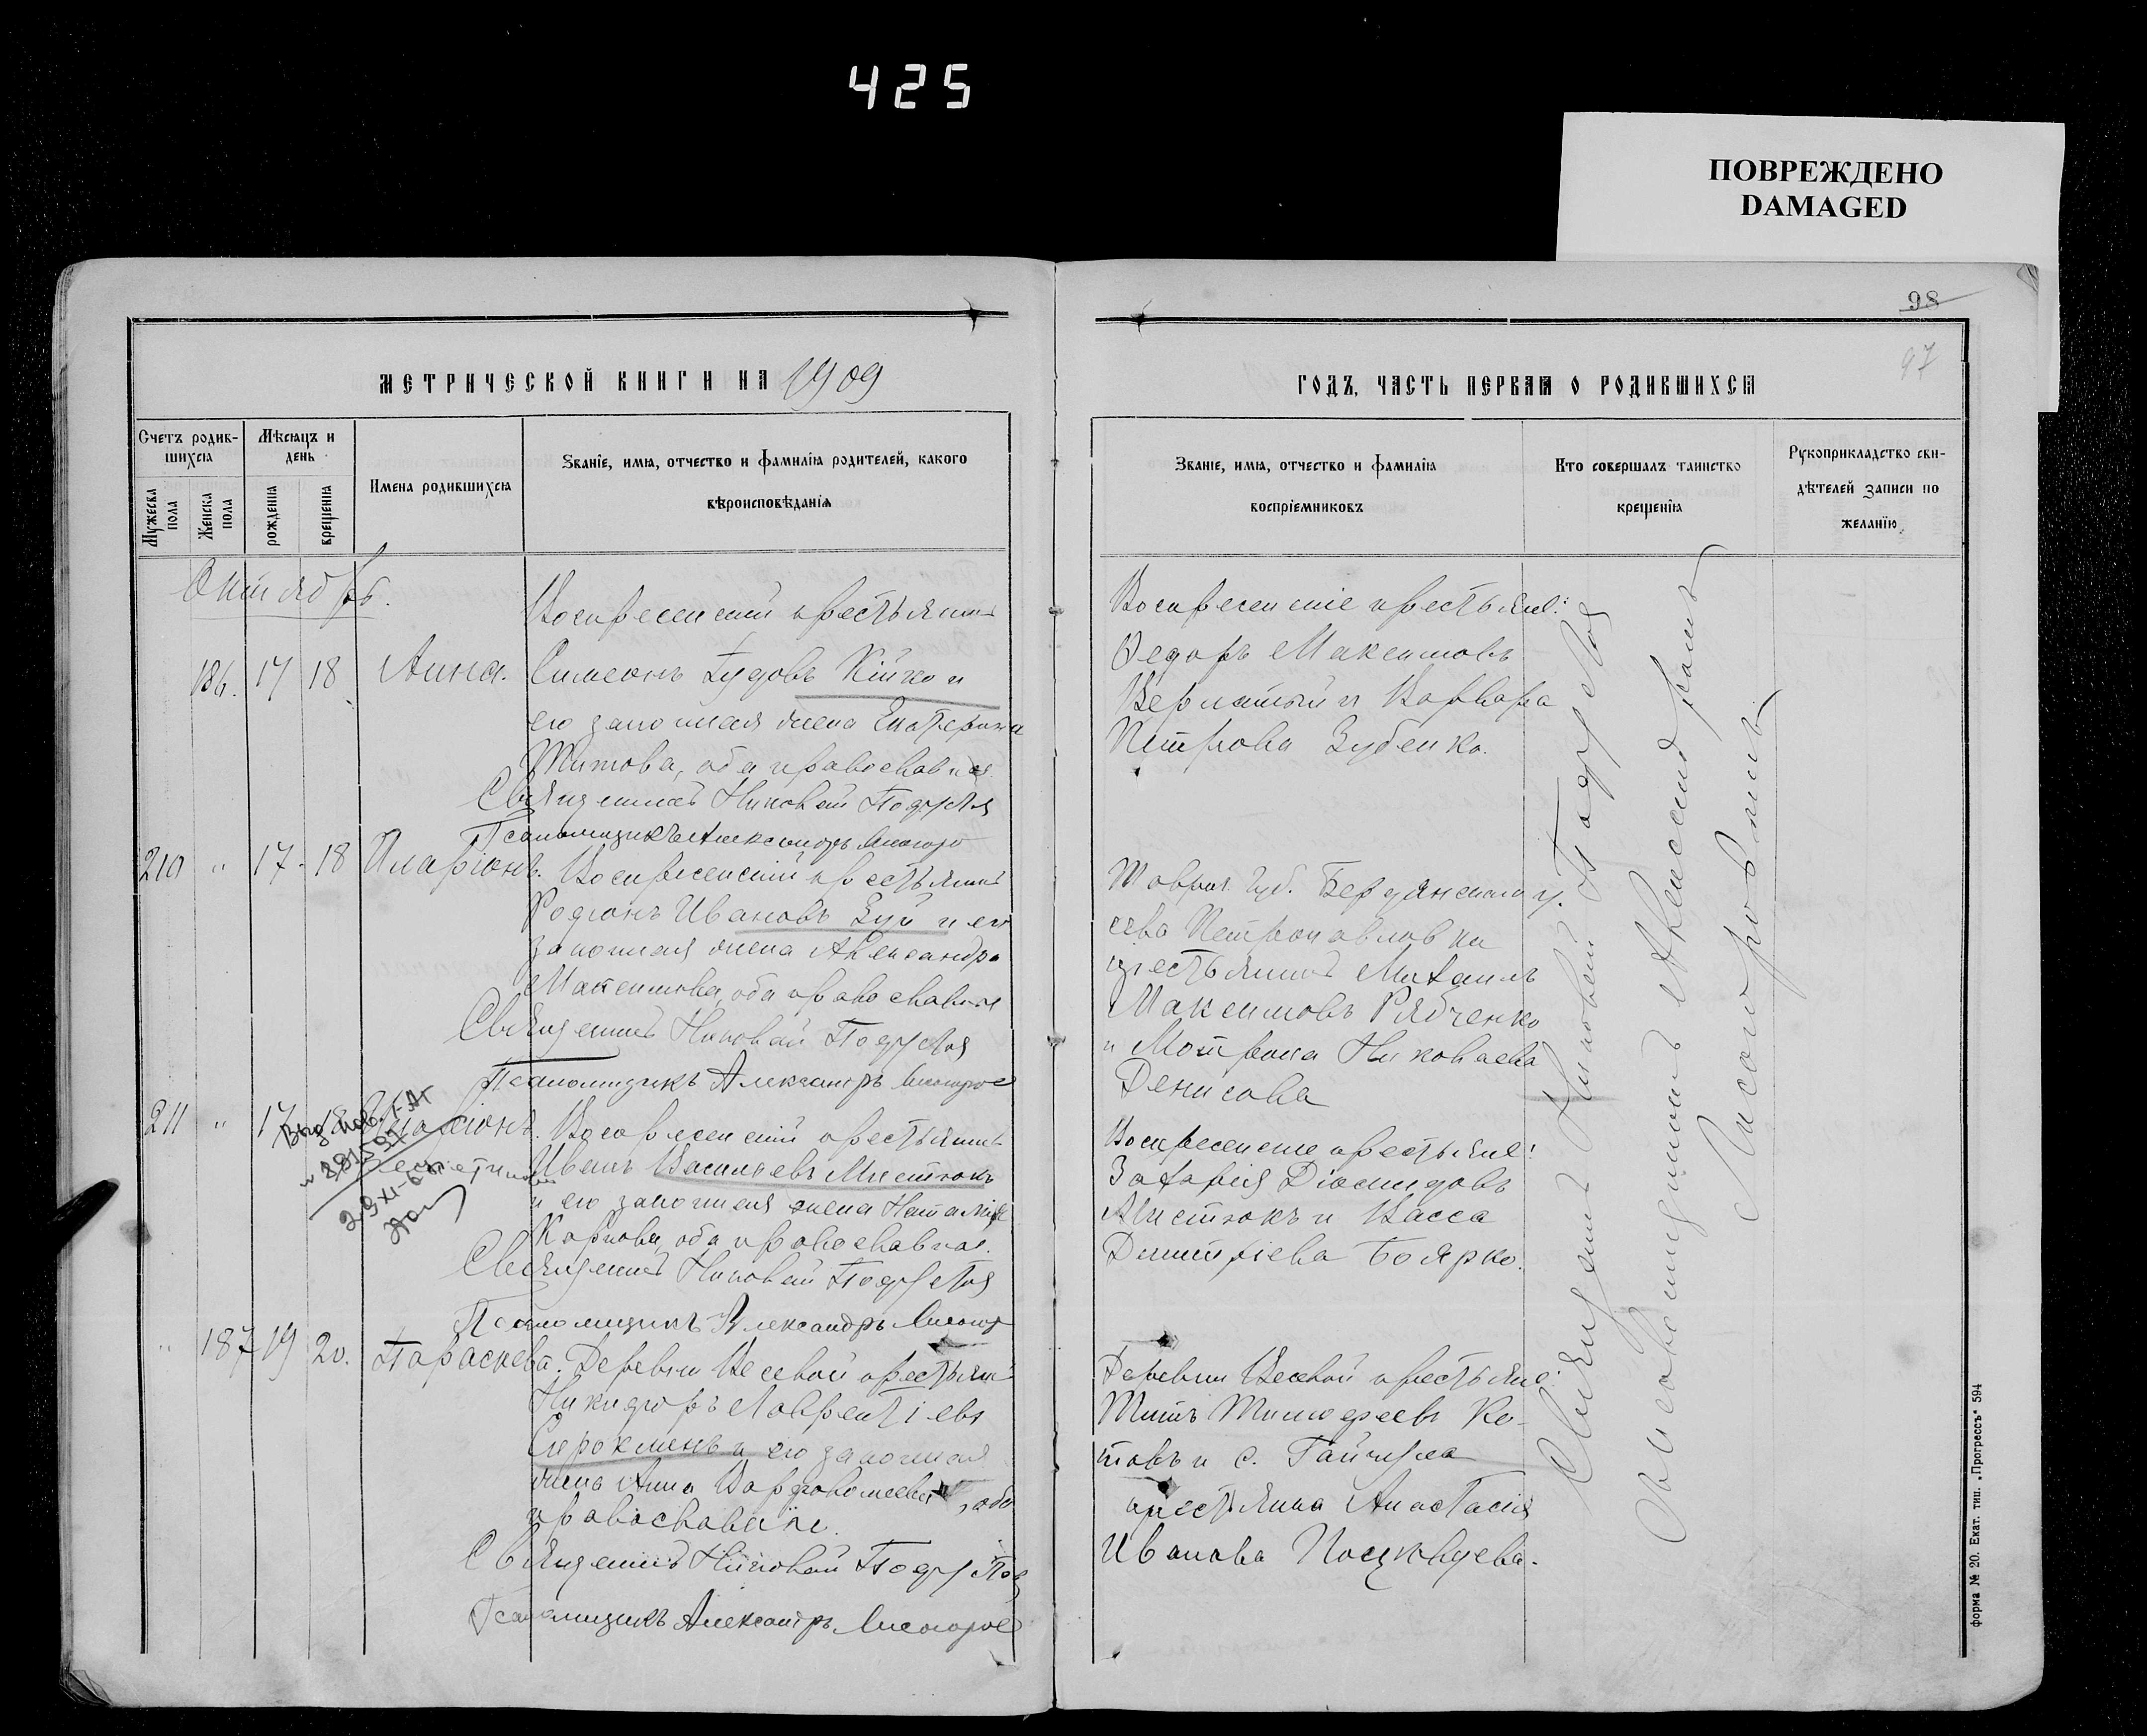 425
ПОВРЕЖДЕНО
DAMAGED
98
97
МЕТРИЧЕСКОЙ КНИГИ НА 1909
ГОДЪ, ЧАСТЬ ПЕРВАЯ О РОДИВШИХСЯ
Счетъ родив-
шихся
Мужеска
пола
Женска
пола
Мѣсяцъ и
день
рожденія
крещенія
Имена родившихся
Званіе, имя, отчество и фамилія родителей, какого
вѣроисповѣданія
Званіе, имя, отчество и фамилія
воспріемниковъ
Кто совершалъ таинство
крещенія
Рукоприкладство сви-
дѣтелей записи по
желанію
Октябрь.
186. 17 18 Анна.
Воскресенскій крестьянинъ
Симеонъ Кійко и
его законная жена Екатерина
Титова, оба православные.
Священникъ Николай
Псаломщикъ Александръ
Воскресенские крестьяне:
Ѳедоръ Максимовъ
и Варвара
Петрова Зубенко.
210 " 17. 18 Иларіонъ.
Воскресенскій крестьянинъ
Родіонъ Ивановъ Зуй и его
законная жена Александра
Максимова, оба православные
Священникъ Николай
Псаломщикъ Александръ
Таврич. Губ. Бердянскаго у.
села Петропавловки
крестьянинъ Михаилъ
Максимовъ Рябченко
и Мотрона Николаева
Денисова
211 " 17 18 Иларіонъ.
Воскресенскій крестьянинъ
Иванъ Васильевъ Мистюкъ
и его законная жена Наталія
Карпова, оба православные.
Священникъ Николай
Псаломщикъ Александръ
Воскресенские крестьяне:
Захарія Діомидовъ
Мистюкъ и Васса
Димитріева Боярко.
" 187 19 20. Параскева.
Деревни Веселой крестьянинъ
Никифоръ Лаврентіевъ
и его законная
жена Анна Варфоломеева, оба
православные.
Священникъ Николай
Псаломщикъ Александръ
Деревни Веселой крестьяне:
Титъ Тимофеевъ Ко-
товъ и с. Гайчула
крестьянка Анастасія
Иванова
Священникъ Николай
Псаломщикъ Александръ
форма № 20. Екат. тип. „Прогрессъ" 594